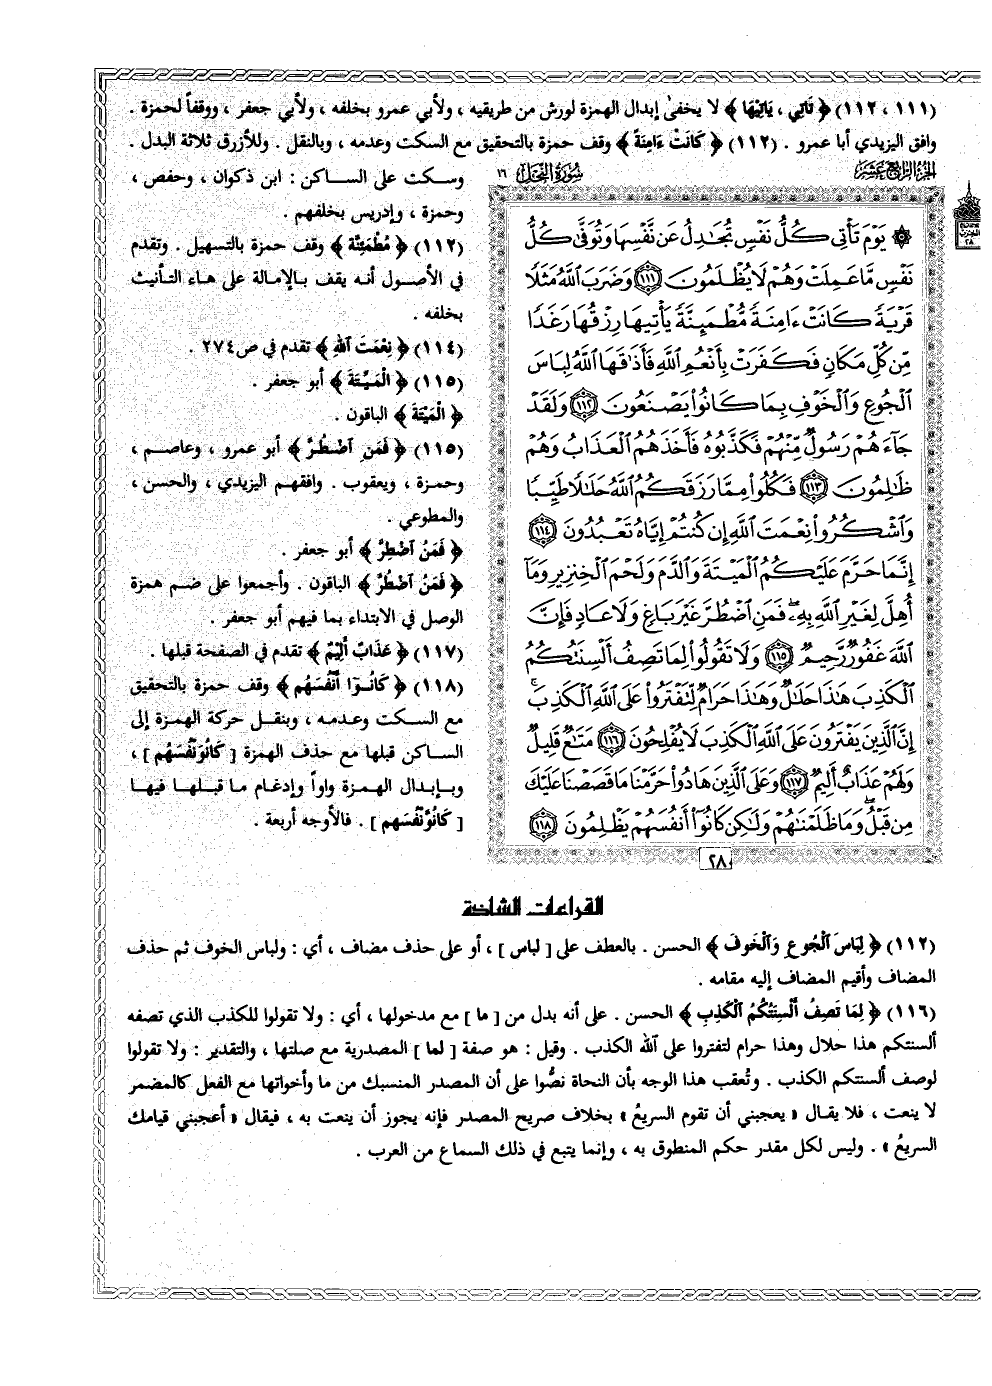 (١١١ ، ١١٢) ﴿ تَاتِي ، يَاتِيْهَا ﴾ لا يخفىٰ إبدال الهمزة لورش من طريقيه ، ولأبي عمرو بخلفه ، ولأبي جعفر ، ووقفاً لحمزة .
وافق اليزيدي أبا عمرو . (١١٢) ﴿ كَانَتْ ءَامِنَةً ﴾ وقف حمزة بالتحقيق مع السكت وعدمه ، وبالنقل . وللأزرق ثلاثة البدل .
وسكت على الساكن : ابن ذكوان ، وحفص ،
وحمزة ، وإدريس بخلفهم .
(١١٢) ﴿ مُطْمَئِنَّة ﴾ وقف حمزة بالتسهيل . وتقدم
في الأصول أنه يقف بالإمالة على هاء التأنيث
بخلفه .
(١١٤) ﴿ نِعْمَتَ اللهِ ﴾ تقدم في ص٢٧٤ .
(١١٥) ﴿ الْمَيِّتَةَ ﴾ أبو جعفر .
﴿ الْمَيْتَةَ ﴾ الباقون .
(١١٥) ﴿ فَمَنِ اضْطُرَّ ﴾ أبو عمرو ، وعاصم ،
وحمزة ، ويعقوب . وافقهم اليزيدي ، والحسن ،
والمطوعي .
﴿ فَمَنُ اضْطِرَّ ﴾ أبو جعفر .
﴿ فَمَنُ اضْطُرَّ ﴾ الباقون . وأجمعوا على ضم همزة
الوصل في الابتداء بما فيهم أبو جعفر .
(١١٧) ﴿ عَذَابٌ أَلِيْمٌ ﴾ تقدم في الصفحة قبلها .
(١١٨) ﴿ كَانُوٓا أَنْفُسَهُم ﴾ وقف حمزة بالتحقيق
مع السكت وعدمه ، وبنقل حركة الهمزة إلى
الساكن قبلها مع حذف الهمزة [ كَانُوَنْفُسَهُم ] ،
وبإبدال الهمزة واواً وإدغام ما قبلها فيها
[ كَانُوَّنْفُسَهم ] . فالأوجه أربعة .
الجزء الرابع عشر
سورة النحل ١٦
۞ يَوْمَ تَأْتِي كُلُّ نَفْسٍ تُجَادِلُ عَن نَّفْسِهَا وَتُوَفَّىٰ كُلُّ
نَفْسٍ مَّا عَمِلَتْ وَهُمْ لَا يُظْلَمُونَ ١١١ وَضَرَبَ اللَّهُ مَثَلًا
قَرْيَةً كَانَتْ ءَامِنَةً مُّطْمَئِنَّةً يَأْتِيهَا رِزْقُهَا رَغَدًا
مِّن كُلِّ مَكَانٍ فَكَفَرَتْ بِأَنْعُمِ اللَّهِ فَأَذَاقَهَا اللَّهُ لِبَاسَ
الْجُوعِ وَالْخَوْفِ بِمَا كَانُوا يَصْنَعُونَ ١١٢ وَلَقَدْ
جَآءَهُمْ رَسُولٌ مِّنْهُمْ فَكَذَّبُوهُ فَأَخَذَهُمُ الْعَذَابُ وَهُمْ
ظَٰلِمُونَ ١١٣ فَكُلُوا مِمَّا رَزَقَكُمُ اللَّهُ حَلَٰلًا طَيِّبًا
وَاشْكُرُوا نِعْمَتَ اللَّهِ إِن كُنتُمْ إِيَّاهُ تَعْبُدُونَ ١١٤
إِنَّمَا حَرَّمَ عَلَيْكُمُ الْمَيْتَةَ وَالدَّمَ وَلَحْمَ الْخِنزِيرِ وَمَآ
أُهِلَّ لِغَيْرِ اللَّهِ بِهِۦ فَمَنِ اضْطُرَّ غَيْرَ بَاغٍ وَلَا عَادٍ فَإِنَّ
اللَّهَ غَفُورٌ رَّحِيمٌ ١١٥ وَلَا تَقُولُوا لِمَا تَصِفُ أَلْسِنَتُكُمُ
الْكَذِبَ هَٰذَا حَلَٰلٌ وَهَٰذَا حَرَامٌ لِّتَفْتَرُوا عَلَى اللَّهِ الْكَذِبَ ۚ
إِنَّ الَّذِينَ يَفْتَرُونَ عَلَى اللَّهِ الْكَذِبَ لَا يُفْلِحُونَ ١١٦ مَتَٰعٌ قَلِيلٌ
وَلَهُمْ عَذَابٌ أَلِيمٌ ١١٧ وَعَلَى الَّذِينَ هَادُوا حَرَّمْنَا مَا قَصَصْنَا عَلَيْكَ
مِن قَبْلُ ۖ وَمَا ظَلَمْنَٰهُمْ وَلَٰكِن كَانُوٓا أَنفُسَهُمْ يَظْلِمُونَ ١١٨
٢٨٠
القراءات الشاذة
(١١٢) ﴿ لِبَاسَ الْجُوعِ وَالْخَوفَ ﴾ الحسن . بالعطف على [ لباس ] ، أو على حذف مضاف ، أي : ولباس الخوف ثم حذف
المضاف وأقيم المضاف إليه مقامه .
(١١٦) ﴿ لِمَا تَصِفُ أَلْسِنَتُكُمُ الْكَذِبِ ﴾ الحسن . على أنه بدل من [ ما ] مع مدخولها ، أي : ولا تقولوا للكذب الذي تصفه
ألسنتكم هذا حلال وهذا حرام لتفتروا على الله الكذب . وقيل : هو صفة [ لما ] المصدرية مع صلتها ، والتقدير : ولا تقولوا
لوصف ألسنتكم الكذب . وتُعقب هذا الوجه بأن النحاة نصُّوا على أن المصدر المنسبك من ما وأخواتها مع الفعل كالمضمر
لا ينعت ، فلا يقال « يعجبني أن تقوم السريعُ » بخلاف صريح المصدر فإنه يجوز أن ينعت به ، فيقال « أعجبني قيامك
السريعُ » . وليس لكل مقدر حكم المنطوق به ، وإنما يتبع في ذلك السماع من العرب .